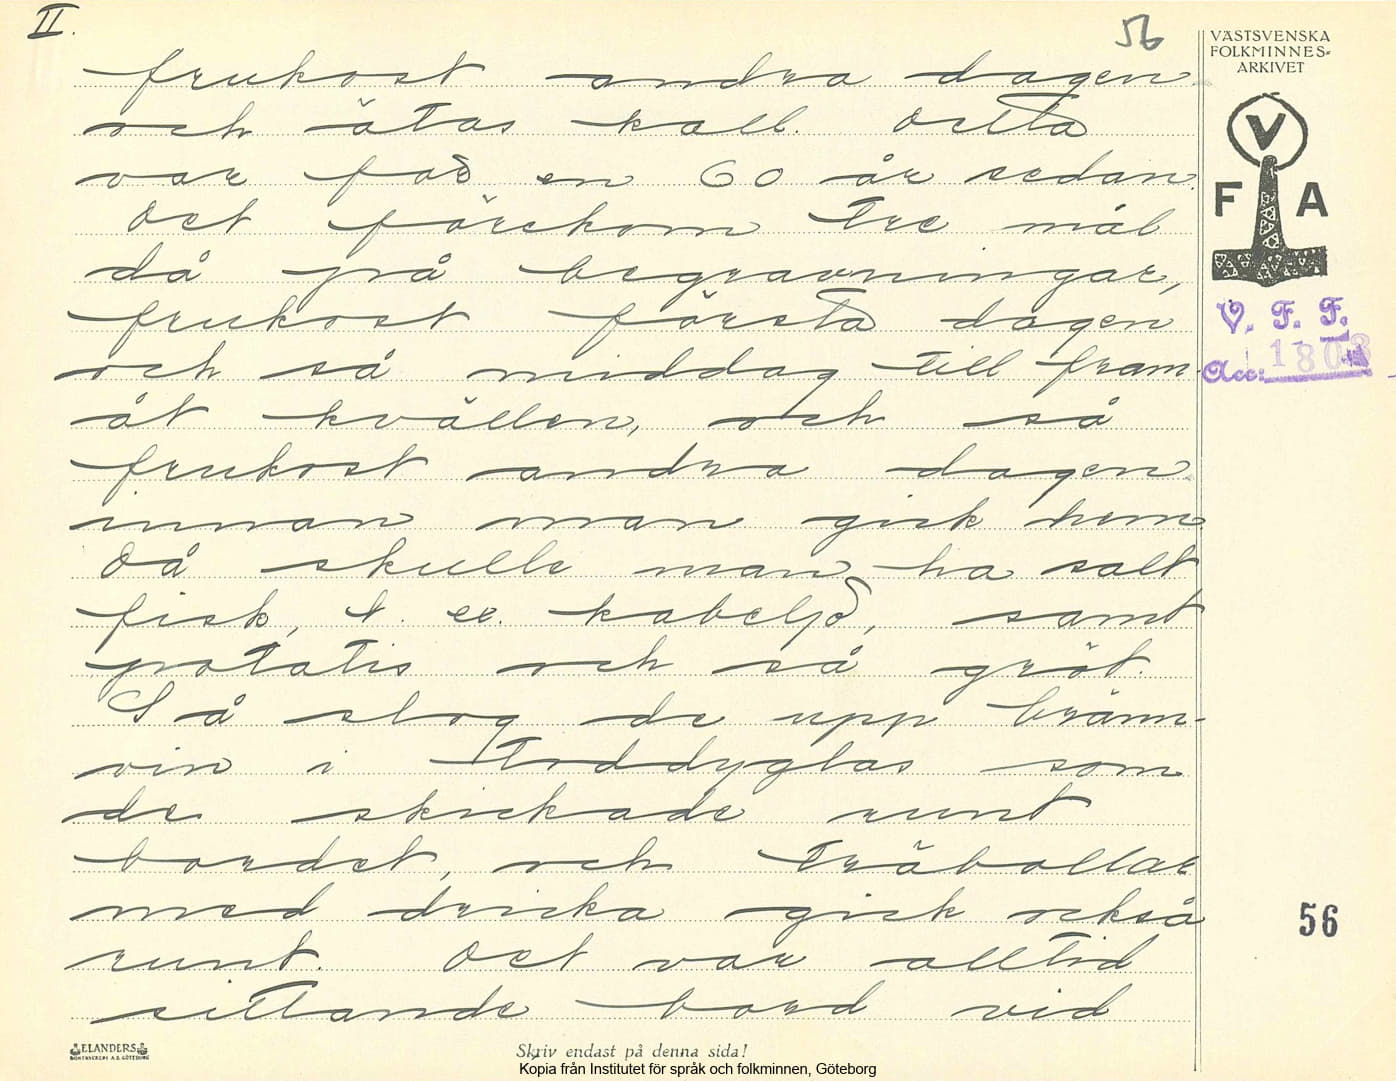 II.
56
VÄSTSVENSKA
FOLKMINNES-
ARKIVET
V
F A
V. F. F.
Acc: 1803
frukost andra dagen
och ätas kall. Detta
var för en 60 år sedan.
Det förekom tre mål
då på begravningar,
frukost första dagen
och så middag till fram-
åt kvällen, och så
frukost andra dagen
innan man gick hem
Då skulle man ha salt
fisk, t. ex. kabeljo, samt
potatis och så gröt.
Så slog de upp bränn-
vin i toddyglas som
de skickade runt
bordet, och träbollar
med dricka gick också
runt. Det var alltid
sittande bord vid
56
ELANDERS
BOKTRYCKERI A.B. GÖTEBORG
Skriv endast på denna sida!
Kopia från Institutet för språk och folkminnen, Göteborg